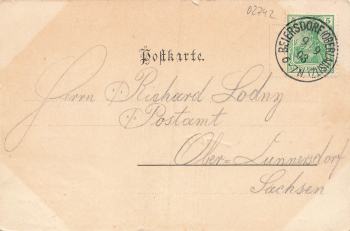 02742
5
BEIERSDORF (OBERLAUSITZ)
9 9
03
Postkarte.
Herrn Richard Lodny
Postamt
Ober-Cunnersdorf
Sachsen